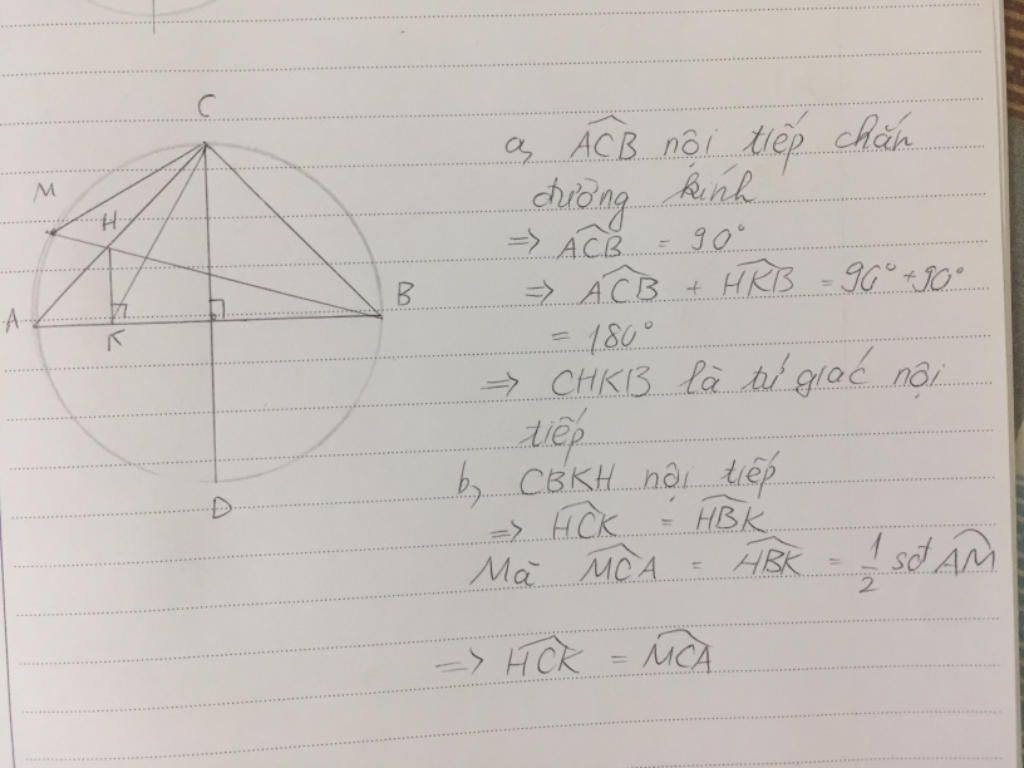 C
M
H
A
B
K
D
a, ACB nội tiếp chắn
đường kính
=> ACB = 90°
=> ACB + HKB = 90° + 90°
= 180°
=> CHKB là tứ giác nội
tiếp
b, CBKH nội tiếp
=> HCK = HBK
Mà MCA = HBK = 1/2 sđ AM
=> HCK = MCA